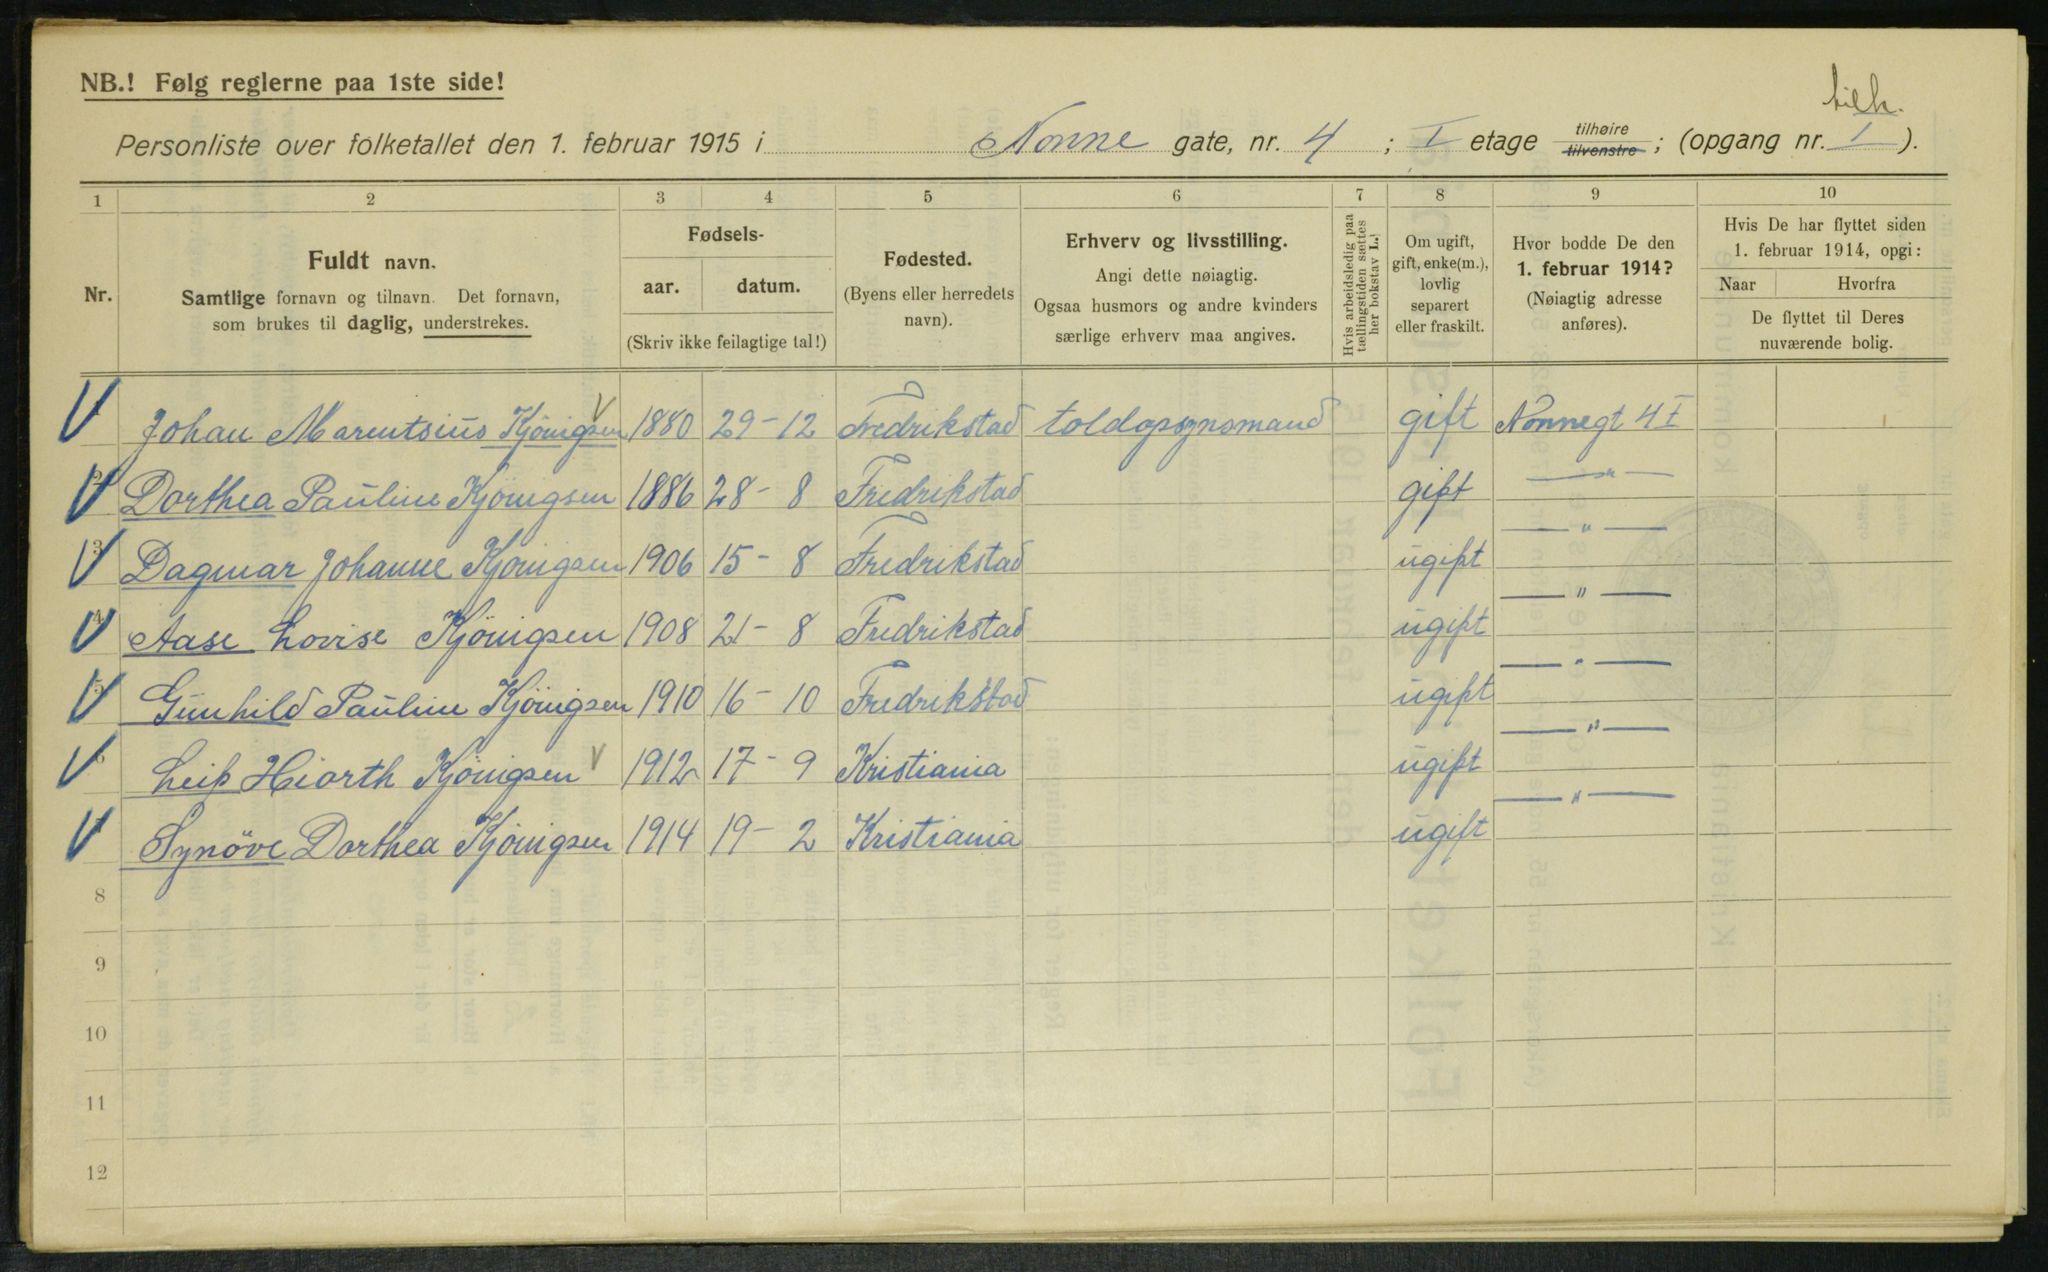 NB.! Følg reglerne paa 1ste side!
tilh.
Personliste over folketallet den 1. februar 1915 i Nonne gate, nr. 4 ; I etage tilhøire tilvenstre ; (opgang nr. 1 ).
1 2 3 4 5 6 7 8 9 10
Nr.
Fuldt navn.
Samtlige fornavn og tilnavn. Det fornavn,
som brukes til daglig, understrekes.
Fødsels-
aar. datum.
(Skriv ikke feilagtige tal!)
Fødested.
(Byens eller herredets
navn).
Erhverv og livsstilling.
Angi dette nøiagtig.
Ogsaa husmors og andre kvinders
særlige erhverv maa angives.
Hvis arbeidsledig paa
tællingstiden sættes
her bokstav L.!
Om ugift,
gift, enke(m.),
lovlig
separert
eller fraskilt.
Hvor bodde De den
1. februar 1914?
(Nøiagtig adresse
anføres).
Hvis De har flyttet siden
1. februar 1914, opgi:
Naar Hvorfra
De flyttet til Deres
nuværende bolig.
1 Johan Marentsius Kjönigsen 1880 29-12 Fredrikstad toldopsynsmand gift Nonnegt 4 I
2 Dorthea Pauline Kjönigsen 1886 28-8 Fredrikstad gift — " —
3 Dagmar Johanne Kjönigsen 1906 15-8 Fredrikstad ugift — " —
4 Aase Lovise Kjönigsen 1908 21-8 Fredrikstad ugift — " —
5 Gunhild Pauline Kjönigsen 1910 16-10 Fredrikstad ugift — " —
6 Leif Hiorth Kjönigsen 1912 17-9 Kristiania ugift — " —
7 Synöve Dorthea Kjönigsen 1914 19-2 Kristiania ugift — " —
8
9
10
11
12